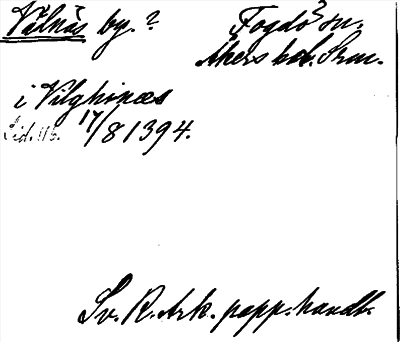 Vålnäs by. ? Fogdö sn.
Åkers hd. Srm.
i Vilghinæs
Lid. 116. 17/8 1394.
Sv. R. Ark. papp. handl.